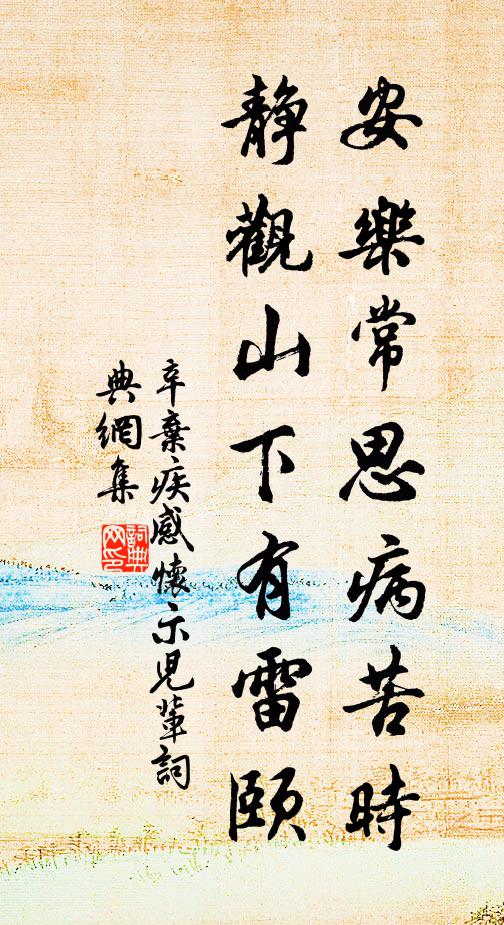 安樂常思病苦時
靜觀山下有雷頤
辛棄疾感懷示兒輩詞
典網集
詞典
网印